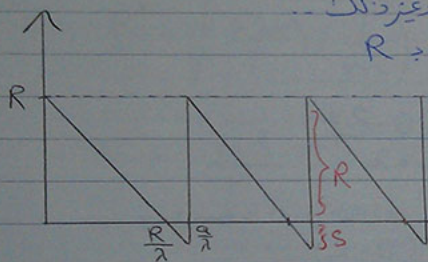 وغير ذلك ..
R
R
R
S
R/λ
a/λ